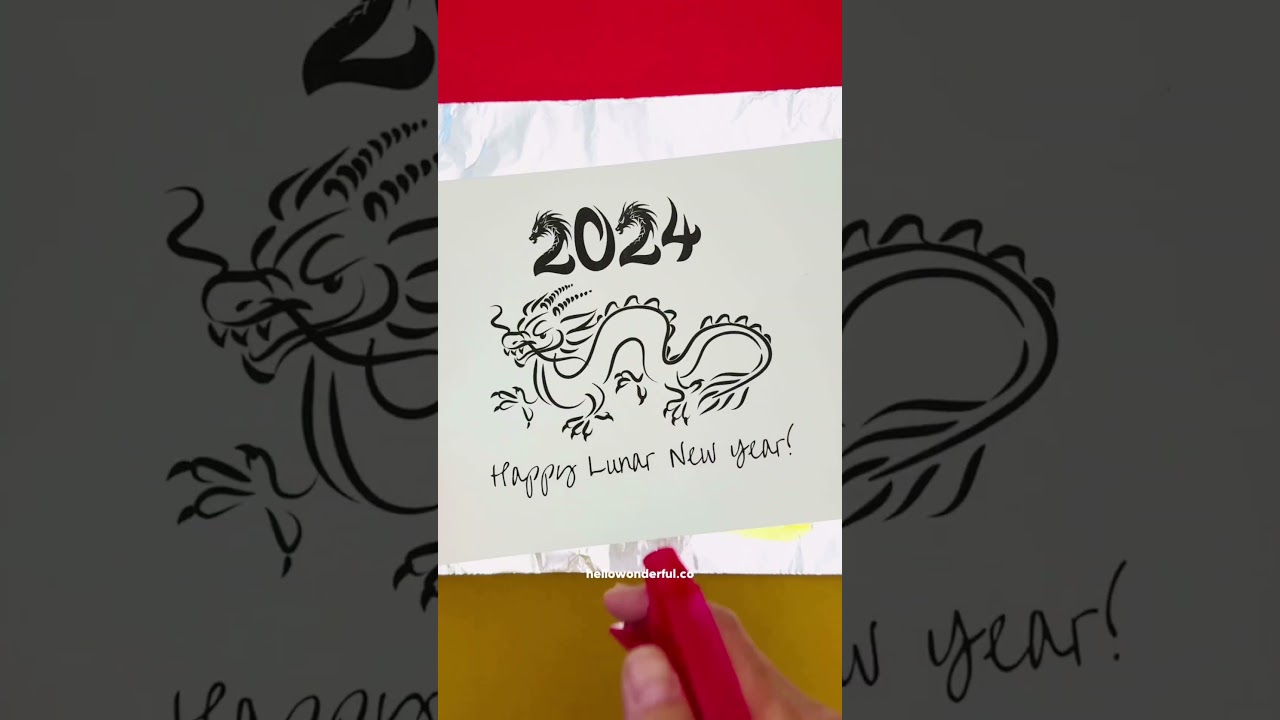 2024
Happy Lunar New Year!
hellowonderful.co